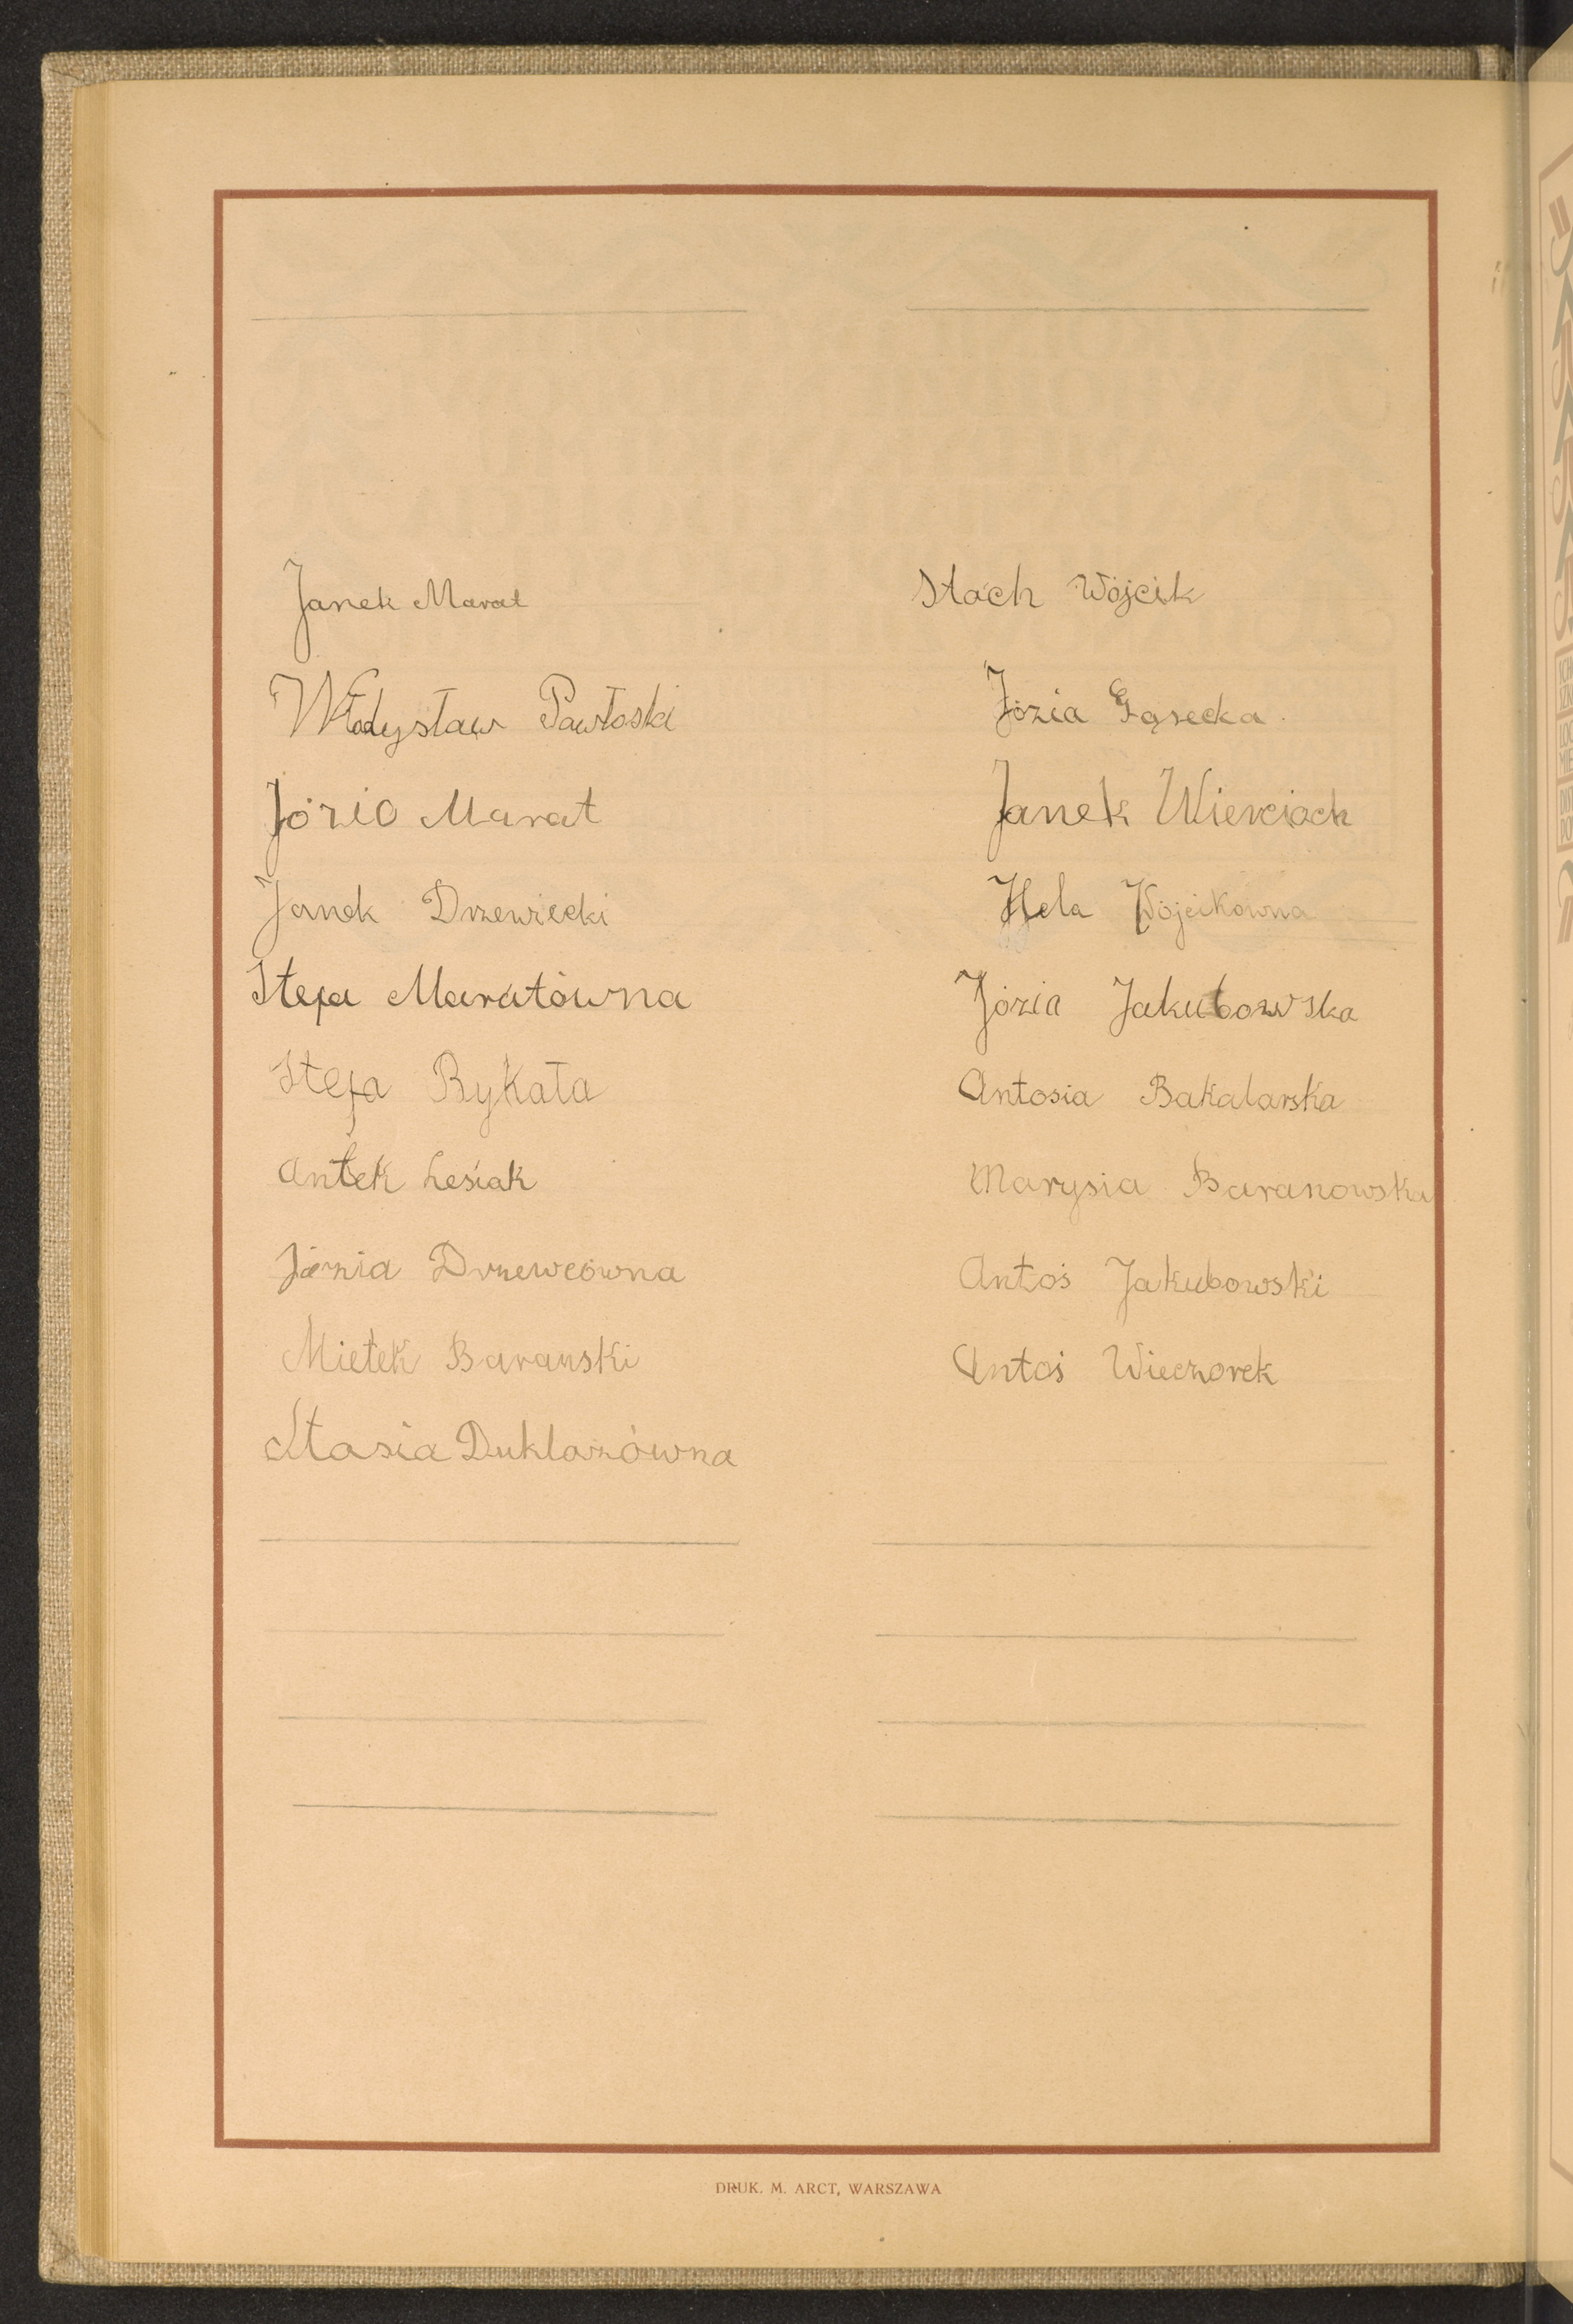 Janek Marat
Władysław Pawłoski
Józio Marat
Janek Drzewiecki
Stefa Maratówna
Stefa Rykała
Antek Lesiak
Józia Drzewcówna
Mietek Barański
Stasia Duklazówna
Stach Wójcik
Józia Gąsecka.
Janek Wierciach
Hela Wójcikówna
Józia Jakubowska
Antosia Bakalarska
Marysia Baranowska
Antoś Jakubowski
Antoś Wieczorek
DRUK. M. ARCT, WARSZAWA